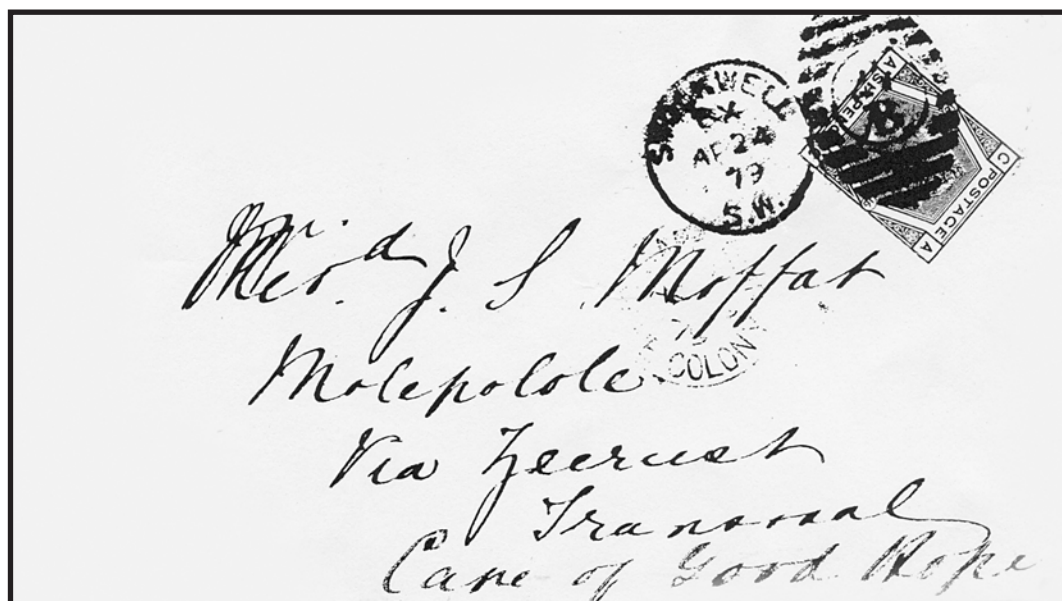 STOCKWELL
BX
AP 24
79
S.W.
SIX PENCE
8
C POSTAGE A
J. S. Moffat
COLON
Molepolole
Via Zeerust
Transvaal
Cape of Good Hope